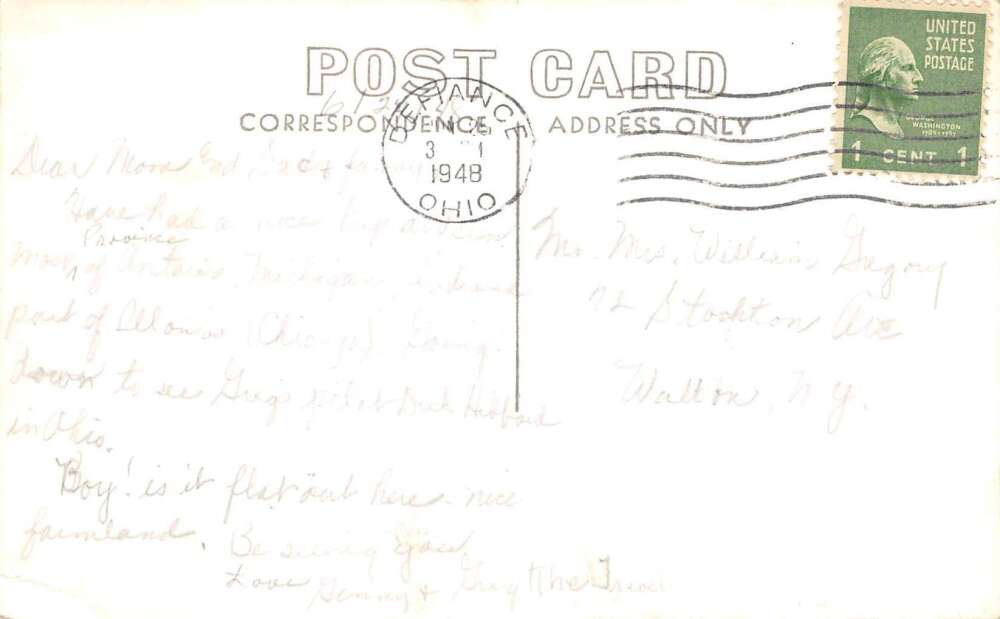 POST CARD
CORRESPONDENCE
ADDRESS ONLY
DEFIANCE
3
1948
OHIO
UNITED
STATES
POSTAGE
GEORGE
WASHINGTON
1789-1797
1 CENT 1
Dear Mom and Dad & family
Have had a nice trip
Province
most of Ontario, Michigan, Indiana
part of Illonois (Chicago). Going
down to see Greg's pilot Dick Hibbard
in Ohio.
Boy! is it flat out here - nice
farmland. Be seeing you.
Love Genny & Greg
Mr. Mrs. William Gregory
72 Stockton Ave
Walton, N.Y.